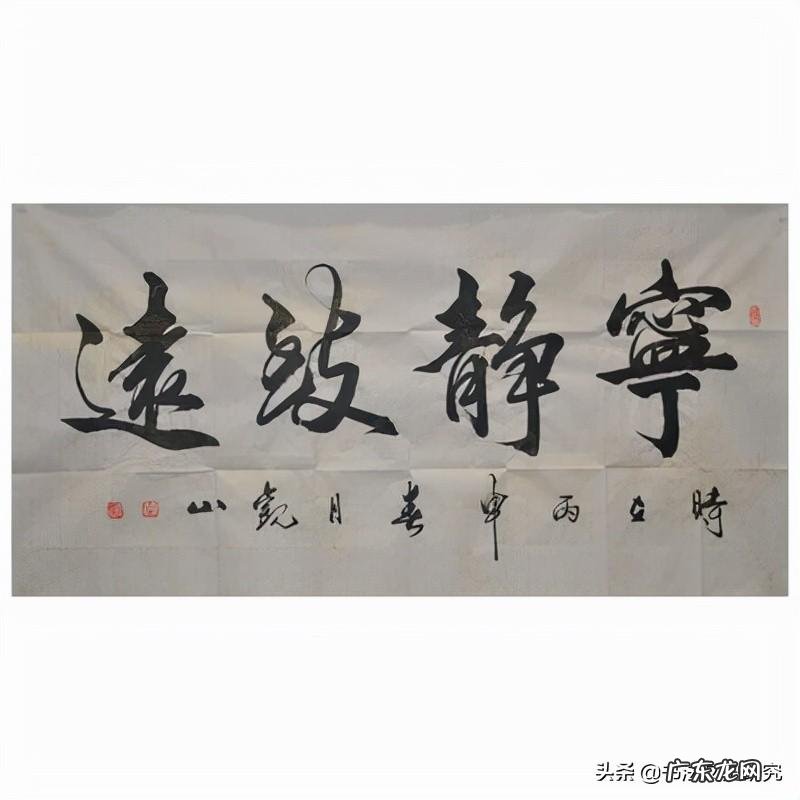 寧靜致遠
時在丙申春月観山
头条 @广东龙网究